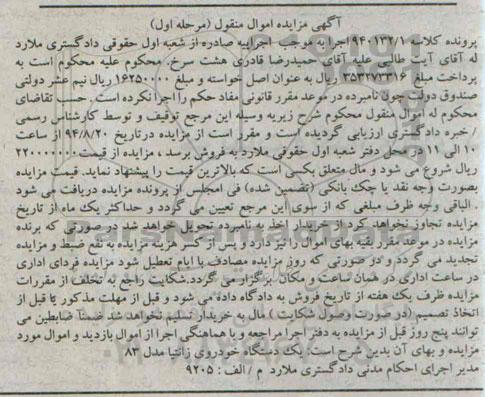 آگهی مزایده اموال منقول (مرحله اول)
پرونده کلاسه ۹۴۰۱۳۲/۱ اجرا به موجب اجراییه صادره از شعبه اول حقوقی دادگستری ملارد
له آقای آیت طالبی علیه آقای حمیدرضا قادری هشت سرخ، محکوم علیه محکوم است به
پرداخت مبلغ ۳۵۳۲۷۳۳۱۶ ریال به عنوان اصل خواسته و مبلغ ۱۶۲۵۰۰۰۰ ریال نیم عشر دولتی
صندوق دولت چون نامبرده در موعد مقرر قانونی مفاد حکم را اجرا نکرده است. حسب تقاضای
محکوم له اموال منقول محکوم شرح زیر به وسیله این مرجع توقیف و توسط کارشناس رسمی
/ خبره دادگستری ارزیابی گردیده است و مقرر است از مزایده در تاریخ ۹۴/۸/۲۰ از ساعت
۱۰ الی ۱۱ در محل دفتر شعبه اول حقوقی ملارد به فروش برسد ، مزایده از قیمت ۲۲۰۰۰۰۰۰۰
ریال شروع می شود و مال متعلق بکسی است که بالاترین قیمت را پیشنهاد نماید. قیمت مزایده
بصورت وجه نقد یا چک بانکی (تضمین شده) فی المجلس از برنده مزایده دریافت می شود
. الباقی وجه ظرف مبلغی که از سوی این مرجع تعیین می گردد و حداکثر یک ماه از تاریخ
مزایده تجاوز نخواهد کرد از خریدار اخذ به نامبرده تحویل خواهد شد در صورتی که برنده
مزایده در موعد مقرر بقیه بهای اموال را نپردازد و پس از کسر هزینه مزایده به نفع ضبط و مزایده
تجدید می گردد و در صورتی که روز مزایده مصادف با ایام تعطیل شود مزایده فردای اداری
در ساعت اداری در همان ساعت و مکان برگزار می گردد. شکایت راجع به تخلف از مقررات
مزایده ظرف یک هفته از تاریخ فروش به دادگاه داده می شود و قبل از مهلت مذکور یا قبل از
اتخاذ تصمیم (در صورت وصول شکایت) مال به خریدار تسلیم نخواهد شد ضمنا ضابطین می
توانند پنج روز قبل از مزایده به دفتر اجرا مراجعه و با هماهنگی اجرا از اموال بازدید و اموال مورد
مزایده و بهای آن بدین شرح است: یک دستگاه خودروی زانتیا مدل ۸۳
مدیر اجرای احکام مدنی دادگستری ملارد م / الف : ۹۲۰۵